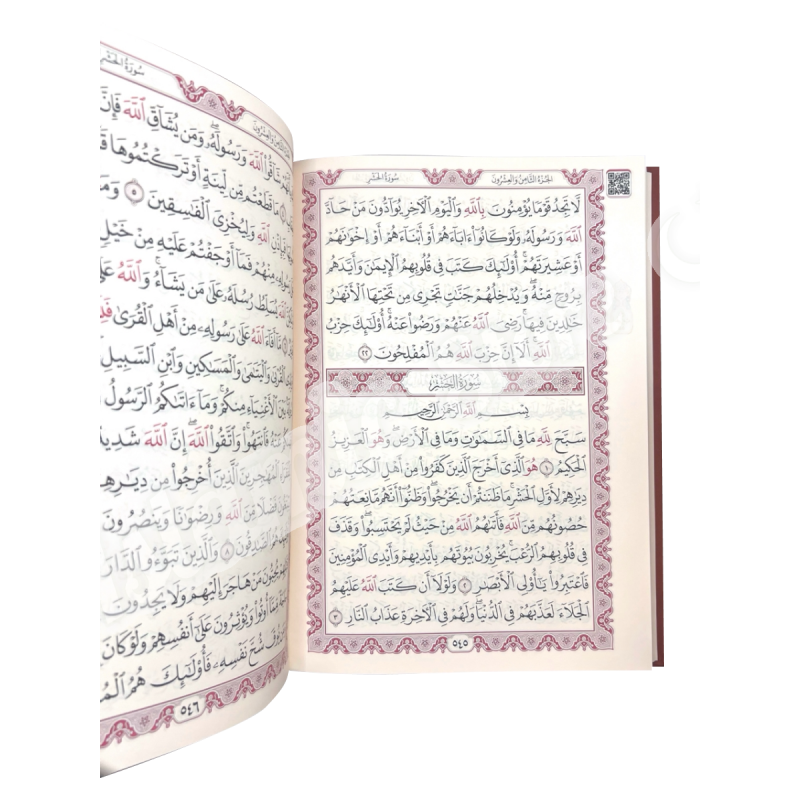 الجزء الثامن والعشرون
سورة الحشر
لَّا تَجِدُ قَوْمًا يُؤْمِنُونَ بِٱللَّهِ وَٱلْيَوْمِ ٱلْءَاخِرِ يُوَآدُّونَ مَنْ حَآدَّ
ٱللَّهَ وَرَسُولَهُۥ وَلَوْ كَانُوٓا۟ ءَابَآءَهُمْ أَوْ أَبْنَآءَهُمْ أَوْ إِخْوَٰنَهُمْ
أَوْ عَشِيرَتَهُمْ ۚ أُو۟لَٰٓئِكَ كَتَبَ فِى قُلُوبِهِمُ ٱلْإِيمَٰنَ وَأَيَّدَهُم
بِرُوحٍ مِّنْهُ ۖ وَيُدْخِلُهُمْ جَنَّٰتٍ تَجْرِى مِن تَحْتِهَا ٱلْأَنْهَٰرُ
خَٰلِدِينَ فِيهَا ۚ رَضِىَ ٱللَّهُ عَنْهُمْ وَرَضُوا۟ عَنْهُ ۚ أُو۟لَٰٓئِكَ حِزْبُ
ٱللَّهِ ۚ أَلَآ إِنَّ حِزْبَ ٱللَّهِ هُمُ ٱلْمُفْلِحُونَ ٢٢
سورة الحشر
بِسْمِ ٱللَّهِ ٱلرَّحْمَٰنِ ٱلرَّحِيمِ
سَبَّحَ لِلَّهِ مَا فِى ٱلسَّمَٰوَٰتِ وَمَا فِى ٱلْأَرْضِ ۖ وَهُوَ ٱلْعَزِيزُ
ٱلْحَكِيمُ ١ هُوَ ٱلَّذِىٓ أَخْرَجَ ٱلَّذِينَ كَفَرُوا۟ مِنْ أَهْلِ ٱلْكِتَٰبِ مِن
دِيَٰرِهِمْ لِأَوَّلِ ٱلْحَشْرِ ۚ مَا ظَنَنتُمْ أَن يَخْرُجُوا۟ ۖ وَظَنُّوٓا۟ أَنَّهُم مَّانِعَتُهُمْ
حُصُونُهُم مِّنَ ٱللَّهِ فَأَتَىٰهُمُ ٱللَّهُ مِنْ حَيْثُ لَمْ يَحْتَسِبُوا۟ ۖ وَقَذَفَ
فِى قُلُوبِهِمُ ٱلرُّعْبَ ۚ يُخْرِبُونَ بُيُوتَهُم بِأَيْدِيهِمْ وَأَيْدِى ٱلْمُؤْمِنِينَ
فَٱعْتَبِرُوا۟ يَٰٓأُو۟لِى ٱلْأَبْصَٰرِ ٢ وَلَوْلَآ أَن كَتَبَ ٱللَّهُ عَلَيْهِمُ
ٱلْجَلَآءَ لَعَذَّبَهُمْ فِى ٱلدُّنْيَا ۖ وَلَهُمْ فِى ٱلْءَاخِرَةِ عَذَابُ ٱلنَّارِ ٣
٥٤٥
سورة الحشر
شَآقُّوا۟ ٱللَّهَ وَرَسُولَهُۥ ۖ وَمَن يُشَآقِّ ٱللَّهَ فَإِنَّ
مَا قَطَعْتُم مِّن لِّينَةٍ أَوْ تَرَكْتُمُوهَا
ٱللَّهِ وَلِيُخْزِىَ ٱلْفَٰسِقِينَ ٥
مِنْهُمْ فَمَآ أَوْجَفْتُمْ عَلَيْهِ مِنْ خَيْلٍ
يُسَلِّطُ رُسُلَهُۥ عَلَىٰ مَن يَشَآءُ ۚ وَٱللَّهُ عَلَىٰ
مَّآ أَفَآءَ ٱللَّهُ عَلَىٰ رَسُولِهِۦ مِنْ أَهْلِ ٱلْقُرَىٰ
وَٱلْيَتَٰمَىٰ وَٱلْمَسَٰكِينِ وَٱبْنِ ٱلسَّبِيلِ
ٱلْأَغْنِيَآءِ مِنكُمْ ۚ وَمَآ ءَاتَىٰكُمُ ٱلرَّسُولُ
فَٱنتَهُوا۟ ۚ وَٱتَّقُوا۟ ٱللَّهَ ۖ إِنَّ ٱللَّهَ شَدِيدُ
ٱلْمُهَٰجِرِينَ ٱلَّذِينَ أُخْرِجُوا۟ مِن دِيَٰرِهِمْ
فَضْلًا مِّنَ ٱللَّهِ وَرِضْوَٰنًا وَيَنصُرُونَ
ٱلصَّٰدِقُونَ ٨ وَٱلَّذِينَ تَبَوَّءُو ٱلدَّارَ
يُحِبُّونَ مَنْ هَاجَرَ إِلَيْهِمْ وَلَا يَجِدُونَ
أُوتُوا۟ وَيُؤْثِرُونَ عَلَىٰٓ أَنفُسِهِمْ وَلَوْ كَانَ
شُحَّ نَفْسِهِۦ فَأُو۟لَٰٓئِكَ هُمُ
٥٤٦